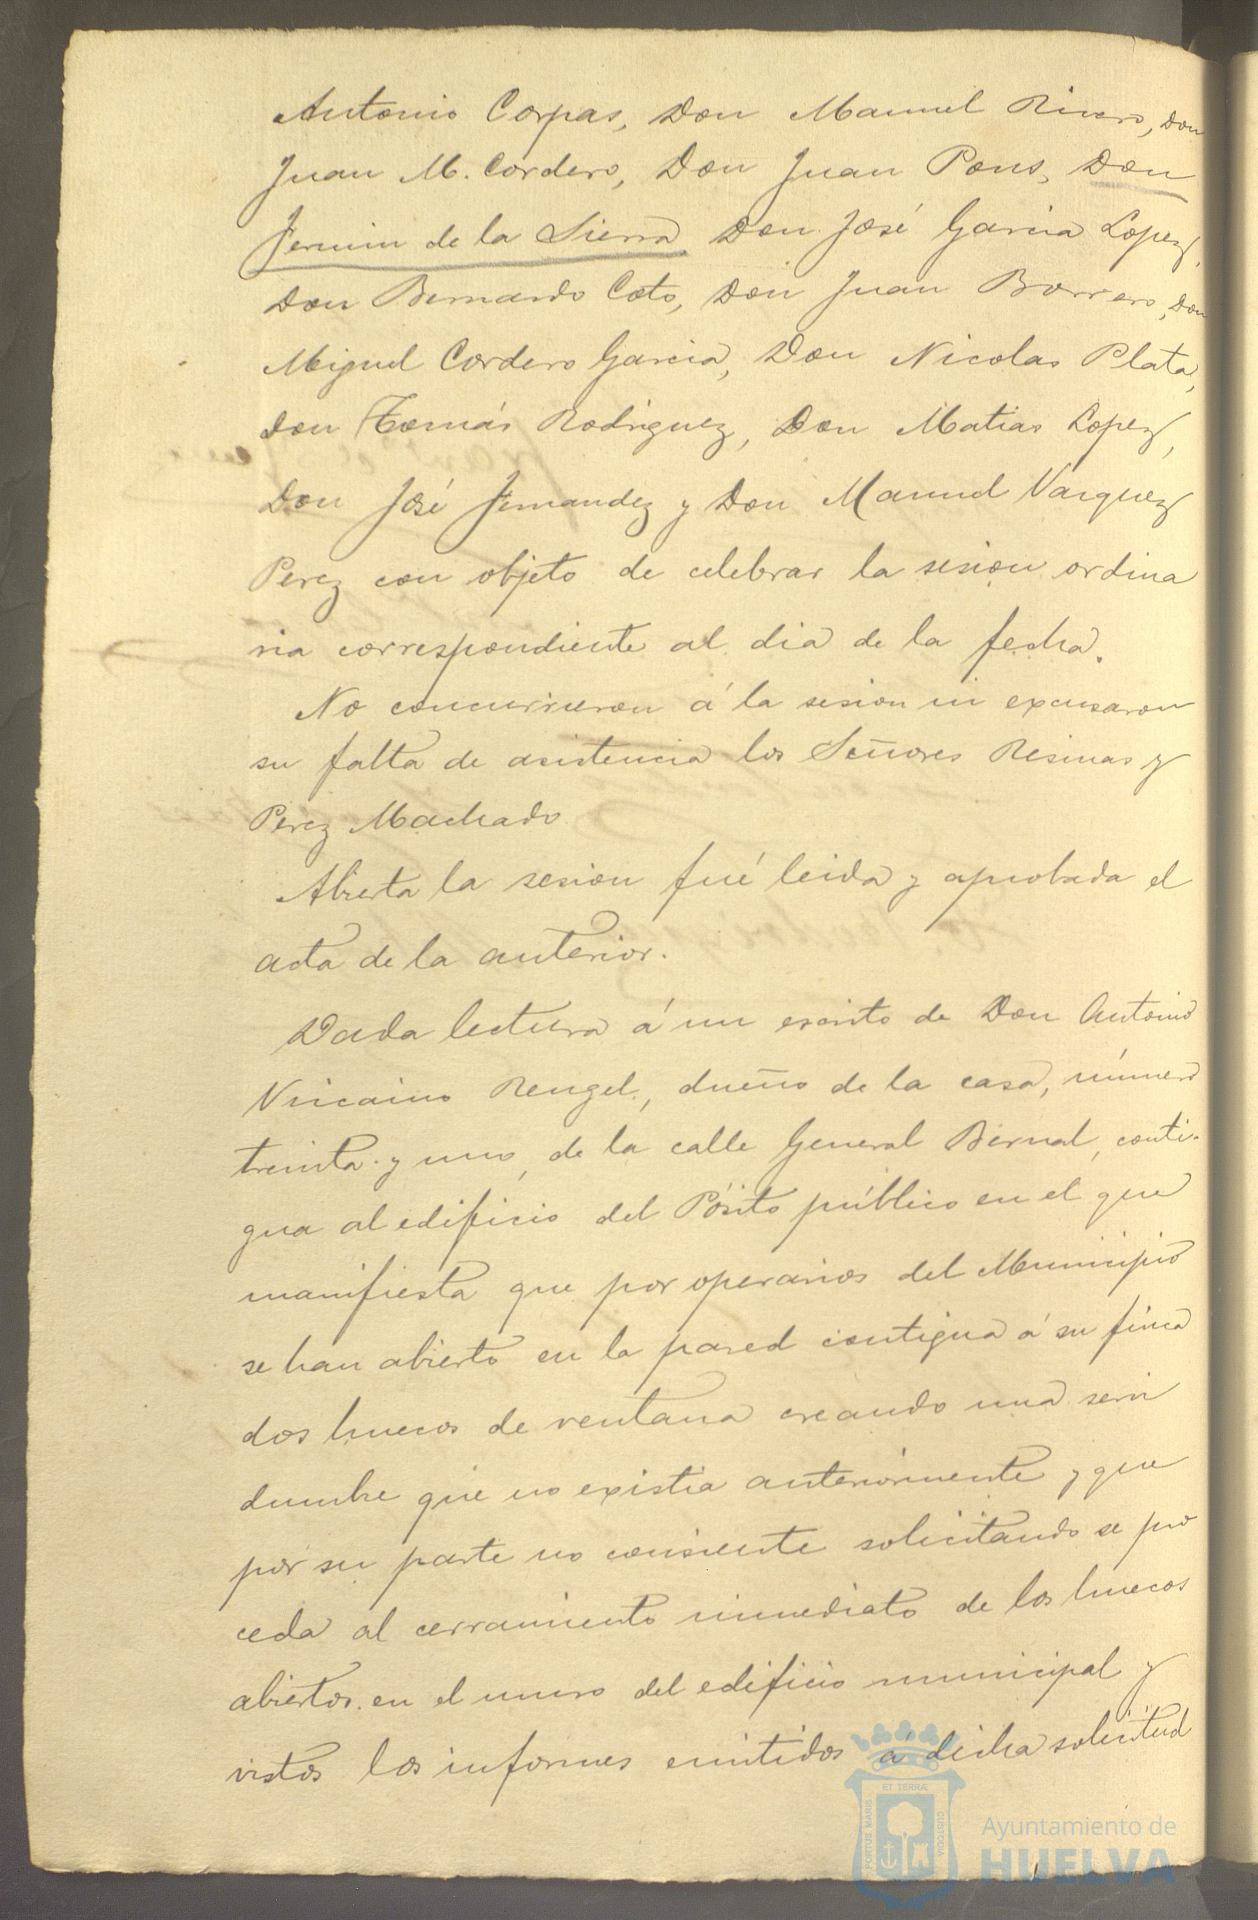 Antonio Corpas, Don Manuel Rivero, Don
Juan M. Cordero, Don Juan Pons, Don
Fermin de la Sierra Don José Garcia Lopez,
Don Bernardo Coto, Don Juan Borrero, Don
Miguel Cordero Garcia, Don Nicolas Plata,
Don Tomás Rodriguez, Don Matias Lopez,
Don José Fernandez y Don Manuel Vazquez
Perez con objeto de celebrar la sesion ordina
ria correspondiente al dia de la fecha.
No concurrieron á la sesion ni excusaron
su falta de asistencia los Señores Resinas y
Perez Machado
Abierta la sesion fué leida y aprobada el
acta de la anterior.
Dada lectura á un escrito de Don Antonio
Viscaino Rengel, dueño de la casa, número
treinta y uno, de la calle General Bernal, conti-
gua al edificio del Pósito público en el que
manifiesta que por operarios del Municipio
se han abierto en la pared contigua á su finca
dos huecos de ventana creando una servi
dumbre que no existia anteriormente y que
por su parte no consiente solicitando se pro
ceda al cerramiento inmediato de los huecos
abiertos en el muro del edificio municipal y
vistos los informes emitidos á dicha solicitud
ET TERRÆ
PORTUS MARIS
CUSTODIA
Ayuntamiento de
HUELVA